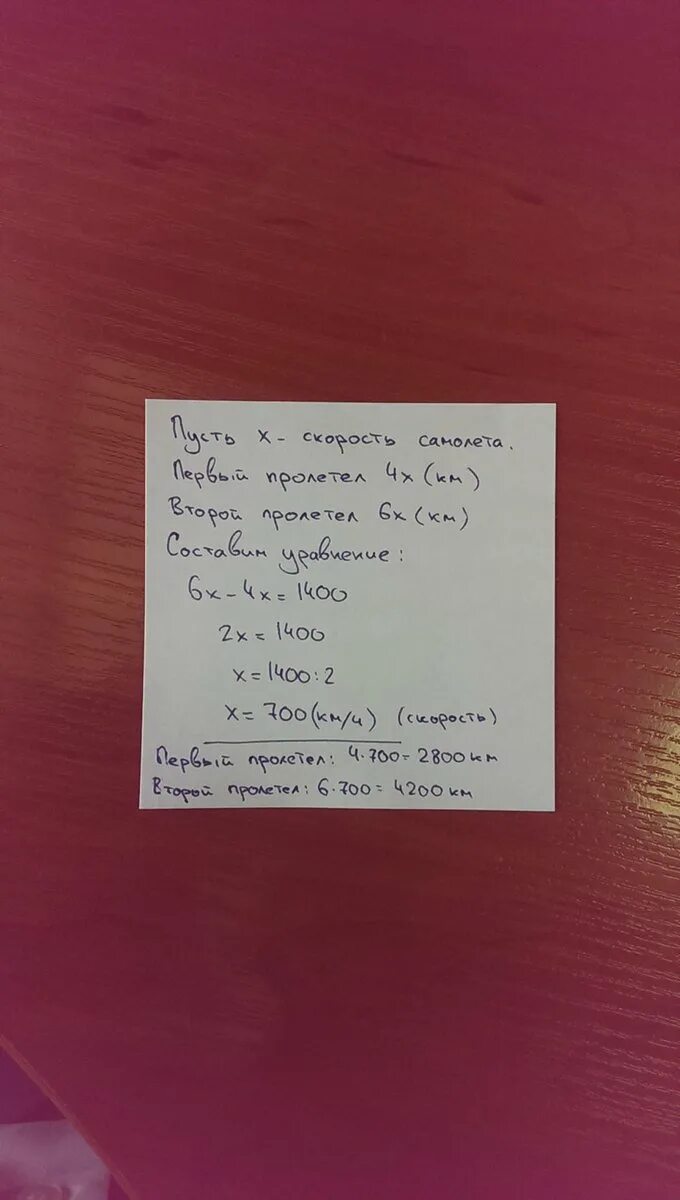 Пусть x - скорость самолета.
Первый пролетел 4x (км)
Второй пролетел 6x (км)
Составим уравнение:
6x - 4x = 1400
2x = 1400
x = 1400 : 2
x = 700 (км/ч) (скорость)
Первый пролетел: 4 · 700 = 2800 км
Второй пролетел: 6 · 700 = 4200 км